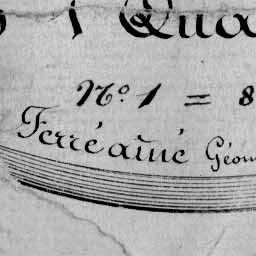 1 Qua
No. 1 = 8
Ferré aîné Géom